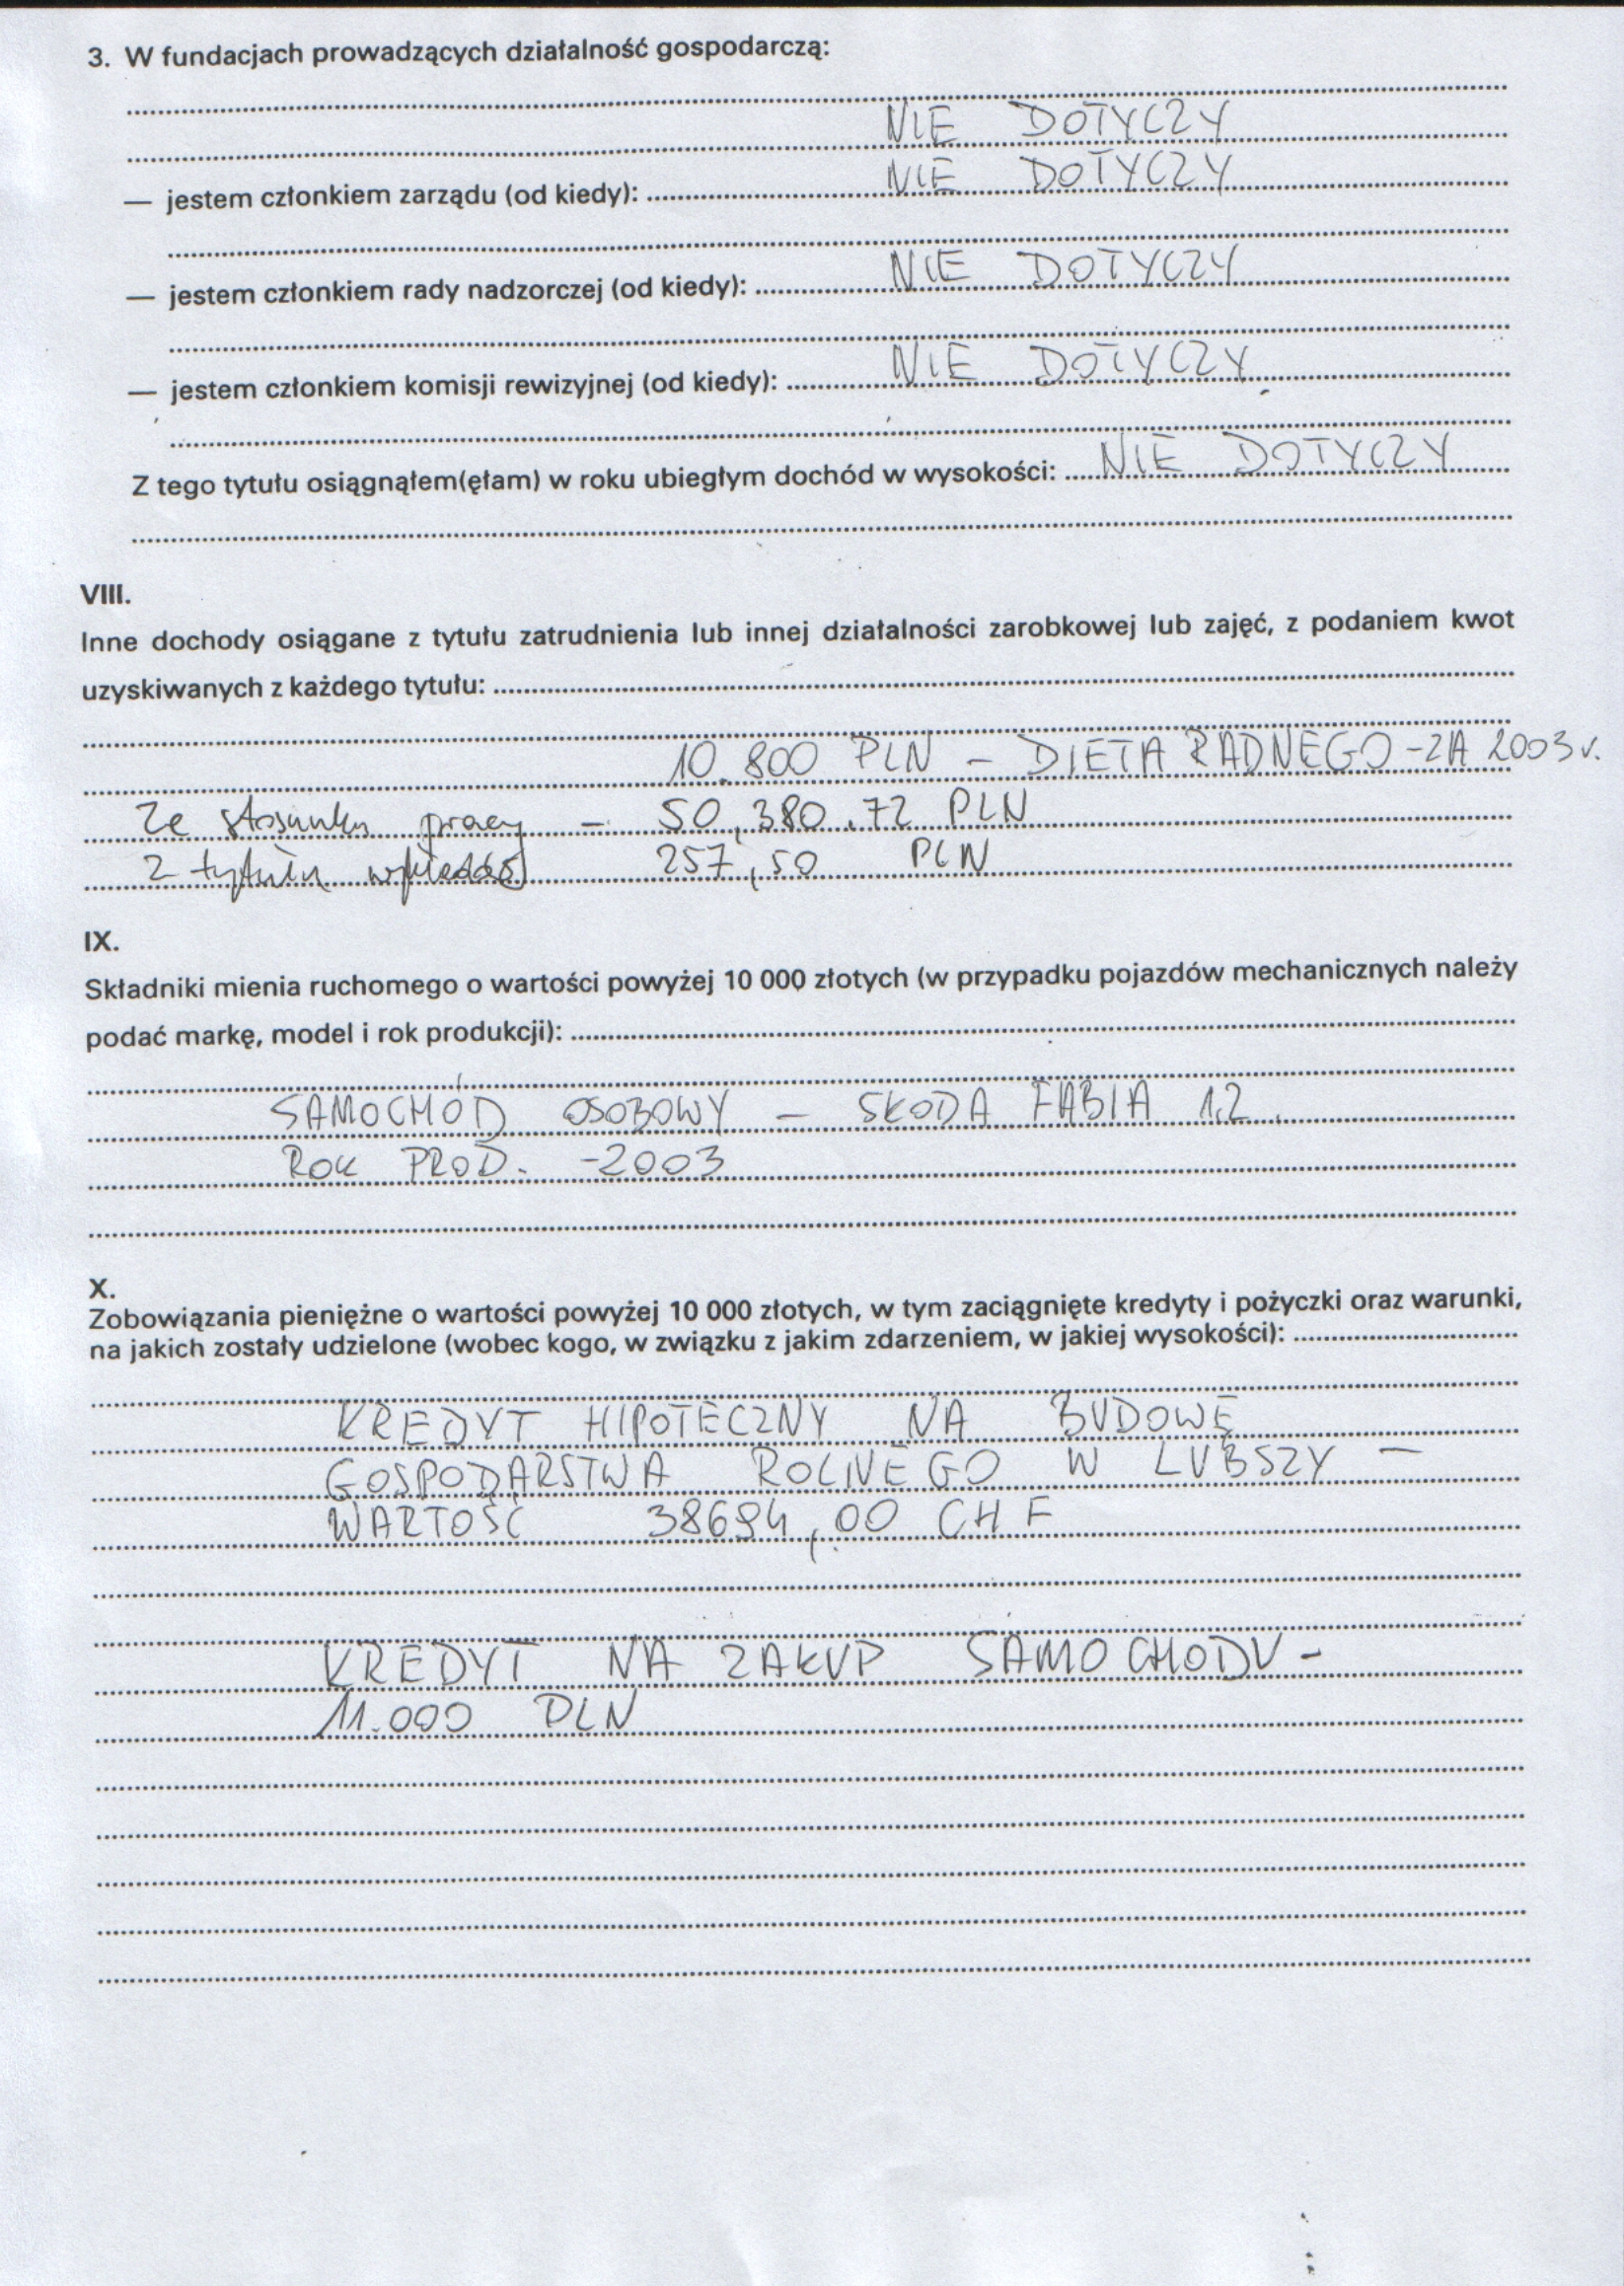 3. W fundacjach prowadzących działalność gospodarczą:
NIE DOTYCZY
— jestem członkiem zarządu (od kiedy): NIE DOTYCZY
— jestem członkiem rady nadzorczej (od kiedy): NIE DOTYCZY
— jestem członkiem komisji rewizyjnej (od kiedy): NIE DOTYCZY
Z tego tytułu osiągnąłem(ęłam) w roku ubiegłym dochód w wysokości: NIE DOTYCZY
VIII.
Inne dochody osiągane z tytułu zatrudnienia lub innej działalności zarobkowej lub zajęć, z podaniem kwot
uzyskiwanych z każdego tytułu:
10.800 PLN – DIETA RADNEGO - ZA 2003 r.
Ze stosunku pracy – 50,380.72 PLN
Z tytułu wykładów 257,50 PLN
IX.
Składniki mienia ruchomego o wartości powyżej 10 000 złotych (w przypadku pojazdów mechanicznych należy
podać markę, model i rok produkcji):
SAMOCHÓD OSOBOWY – SKODA FABIA 1,2.
ROK PROD. - 2003
X.
Zobowiązania pieniężne o wartości powyżej 10 000 złotych, w tym zaciągnięte kredyty i pożyczki oraz warunki,
na jakich zostały udzielone (wobec kogo, w związku z jakim zdarzeniem, w jakiej wysokości):
KREDYT HIPOTECZNY NA BUDOWĘ
GOSPODARSTWA ROLNEGO W LUBSZY –
WARTOŚĆ 38694,00 CHF
KREDYT NA ZAKUP SAMOCHODU -
11.000 PLN